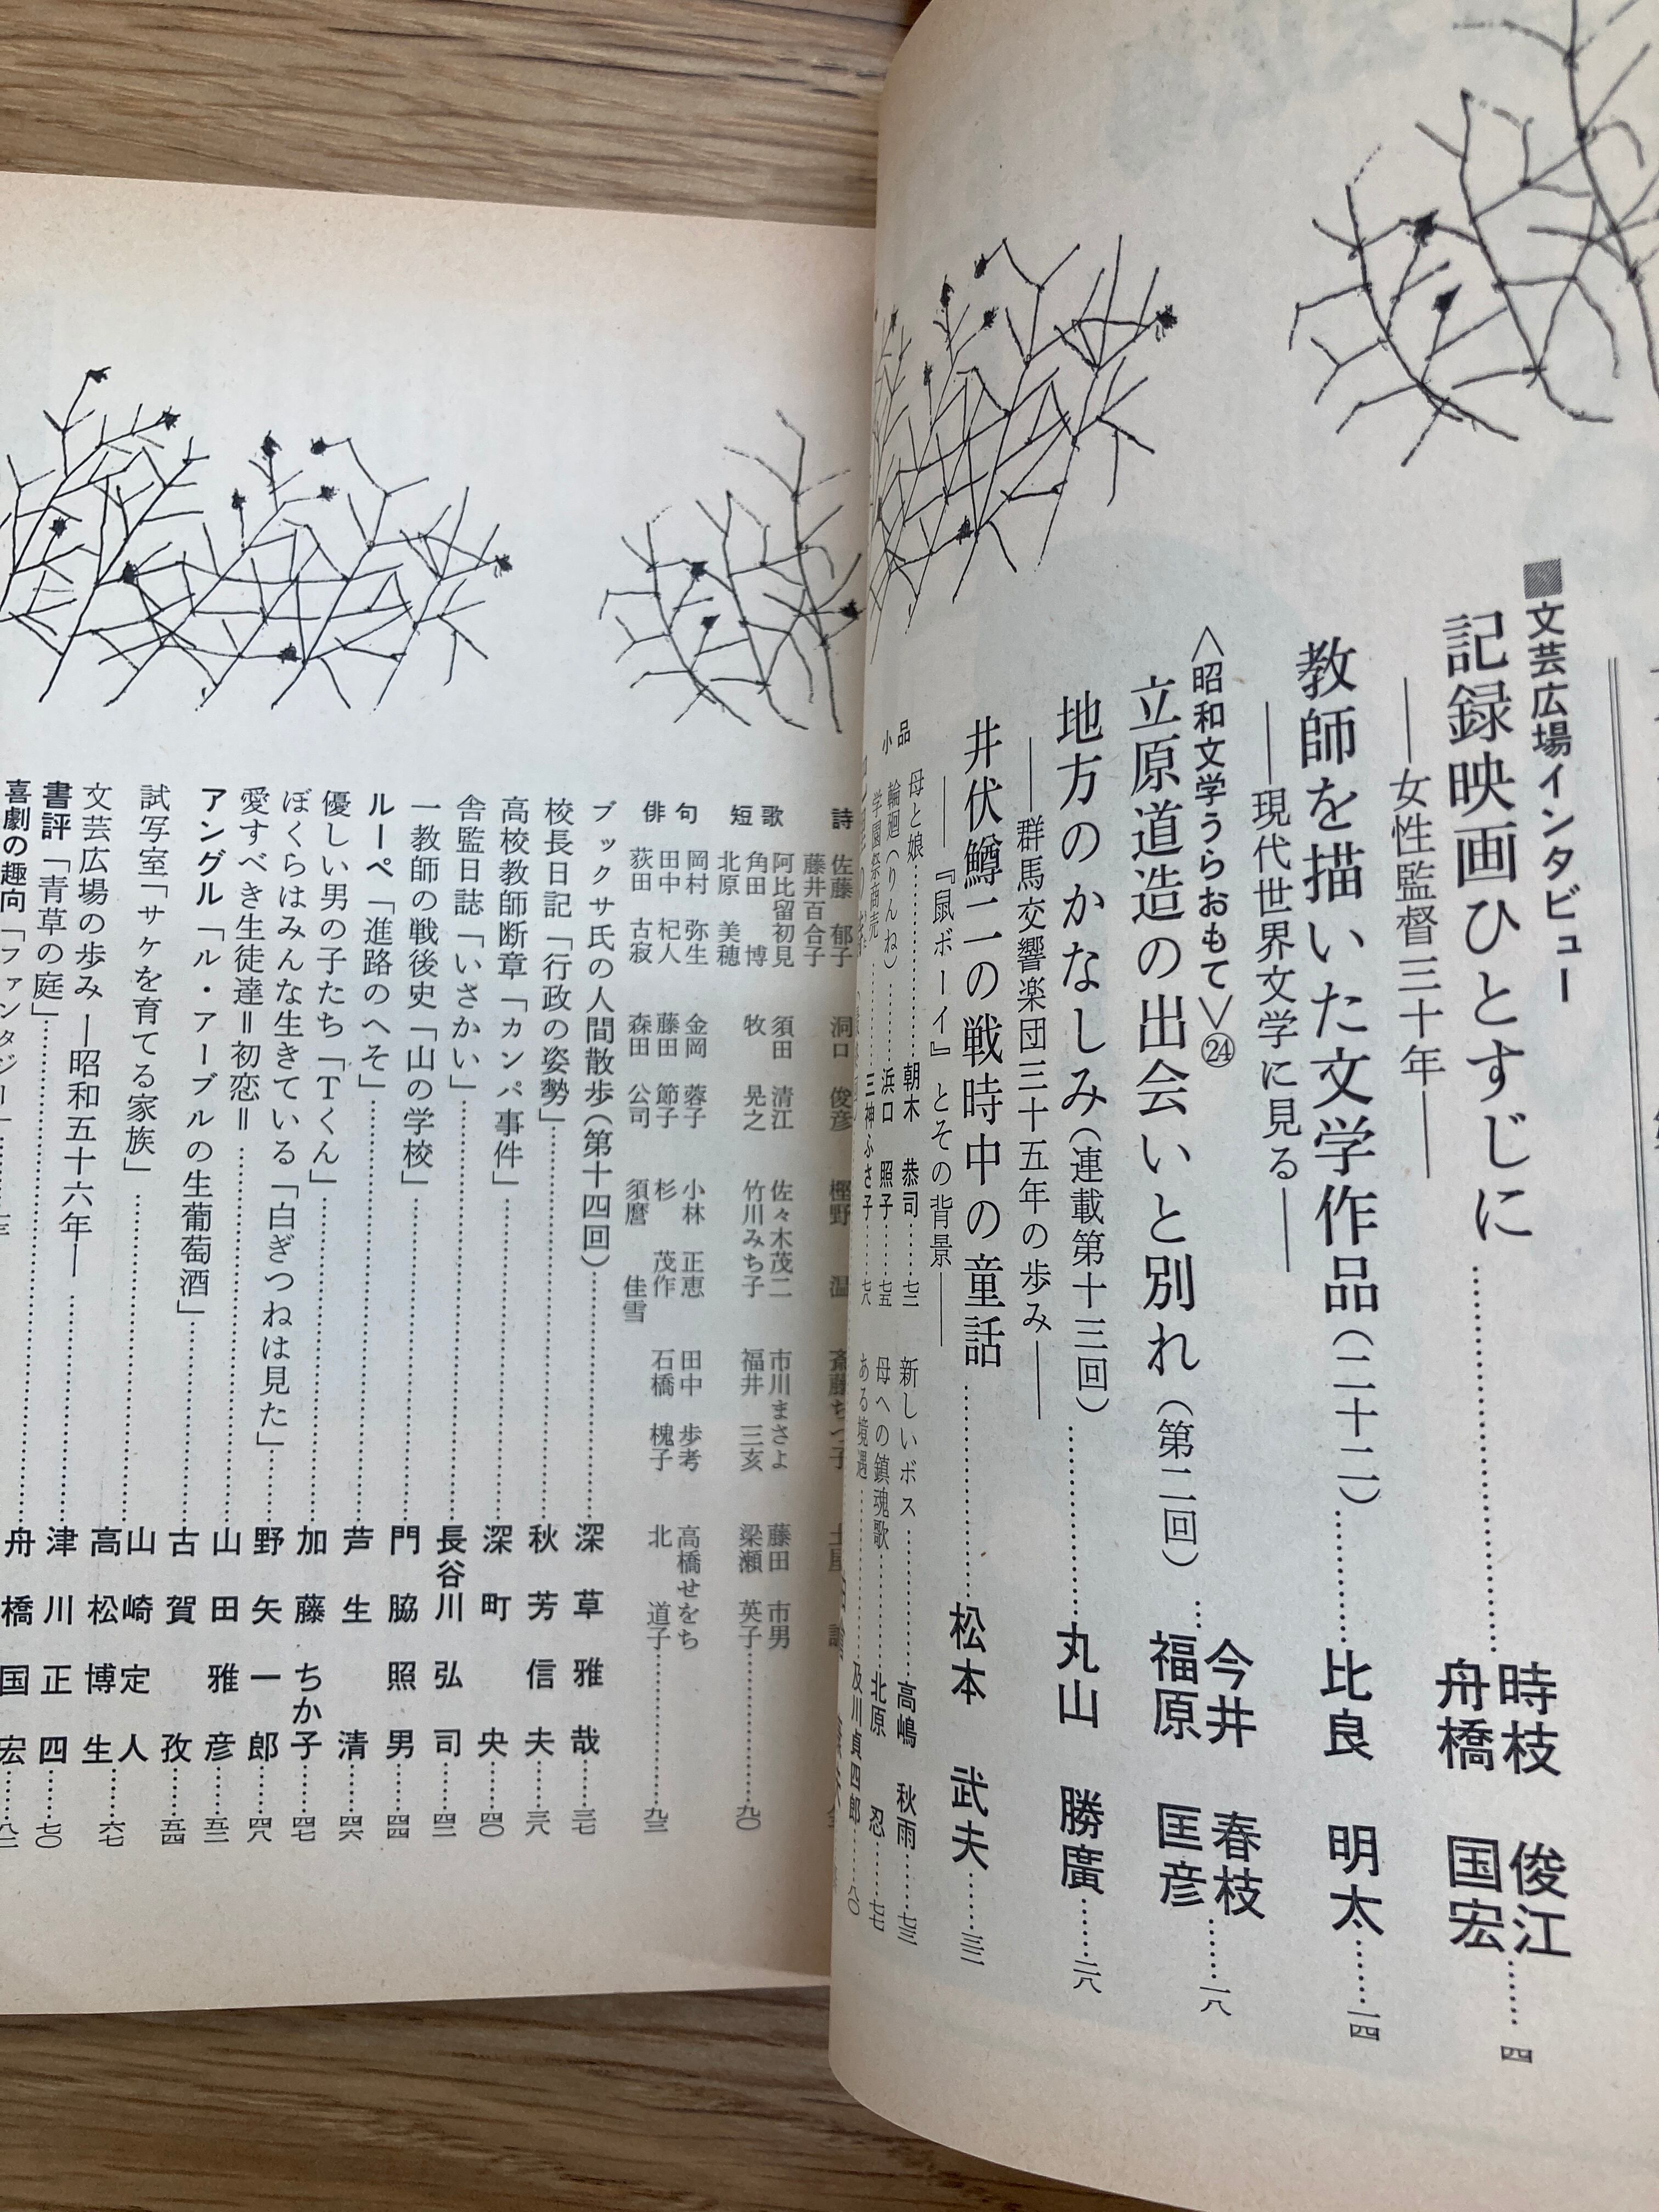 ■文芸広場インタビュー
記録映画ひとすじに………時枝　俊江
舟橋　国宏……四
――女性監督三十年――
教師を描いた文学作品（二十二）………比良　明太……一四
――現代世界文学に見る――
〈昭和文学うらおもて〉㉔
立原道造の出会いと別れ（第二回）…今井　春枝
福原　匡彦……一八
地方のかなしみ（連載第十三回）………丸山　勝廣……二八
――群馬交響楽団三十五年の歩み――
井伏鱒二の戦時中の童話………松本　武夫……三三
――『鼠ボーイ』とその背景――
小品
母と娘………朝木　恭司……七二
輪廻（りんね）………浜口　照子……七五
学園祭商売………三神ふさ子……七八
新しいボス………高嶋　秋雨……七三
母への鎮魂歌………北原　忍……七七
ある境遇………及川貞四郎……八〇
詩
佐藤　郁子　洞口　俊彦　樫野　温
藤井百合子
短歌
阿比留初見　須田　清江　佐々木茂二　市川まさよ　藤田　市男
角田　博　牧　晃之　竹川みち子　福井　三亥　梁瀬　英子………九〇
北原　美穂
俳句
岡村　弥生　金岡　蓉子　小林　正恵　田中　歩考　高橋せをち
田中　杞人　藤田　節子　杉　茂作　石橋　槐子　北　道子………九三
荻田　古寂　森田　公司　須麿　佳雪
ブックサ氏の人間散歩（第十四回）………深草雅哉……三七
校長日記「行政の姿勢」………秋芳信夫……三八
高校教師断章「カンパ事件」………深町　央……四〇
舎監日誌「いさかい」………長谷川弘司……四二
一教師の戦後史「山の学校」………門脇照男……四四
ルーペ「進路のへそ」………芦生　清……四六
優しい男の子たち「Tくん」………加藤ちか子……四七
ぼくらはみんな生きている「白ぎつねは見た」……野矢一郎……四八
愛すべき生徒達＝初恋＝………山田雅彦……五二
アングル「ル・アーブルの生葡萄酒」………古賀　孜……五四
試写室「サケを育てる家族」………山崎定人
高松博生……六七
文芸広場の歩み　―昭和五十六年―………津川正四……七〇
書評「青草の庭」………舟橋国宏……八二
喜劇の趣向「ファンタジー」